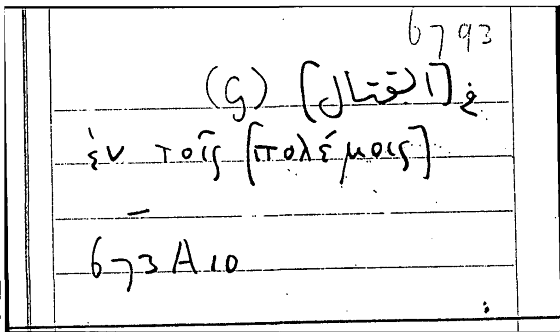 6793
في [القتال] (G)
ἐν τοῖς [πολέμοις]
673 A 10